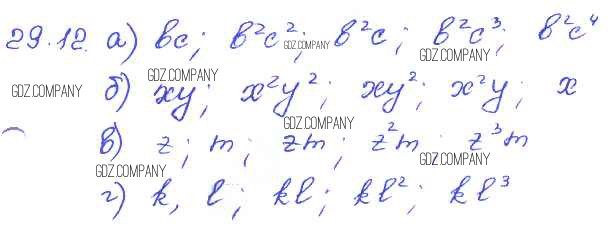 29.12. а) bc; b²c²; b²c; b²c³; b²c⁴
GDZ.COMPANY
GDZ.COMPANY
GDZ.COMPANY
GDZ.COMPANY
б) xy; x²y²; xy²; x²y; x
GDZ.COMPANY
в) z; m; zm; z²m; z³m
GDZ.COMPANY
GDZ.COMPANY
г) k, l; kl; kl²; kl³